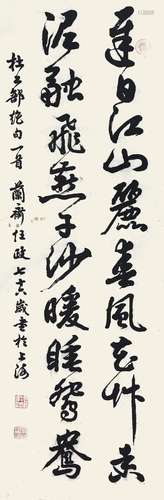 遲日江山麗春風花艸香
泥融飛燕子沙暖睡鴛鴦
杜工部絕句一首 蘭齋任政七十六歲書於上海